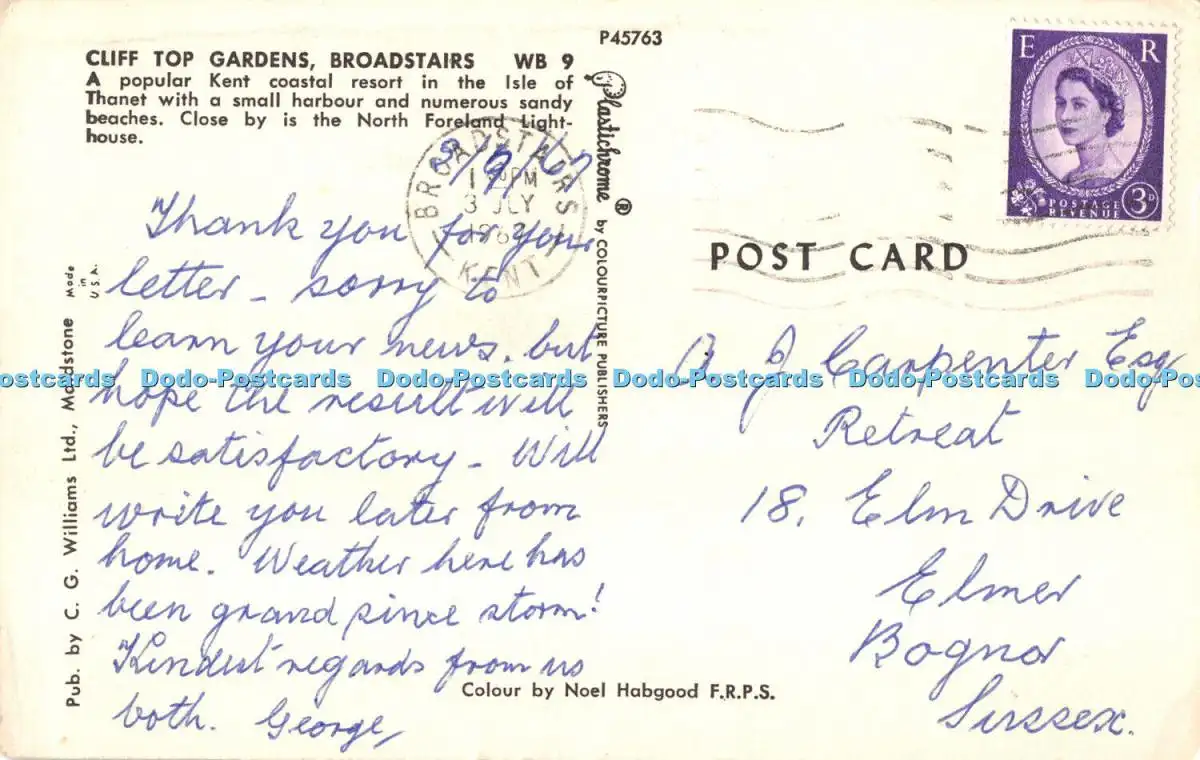 P45763
CLIFF TOP GARDENS, BROADSTAIRS WB 9
A popular Kent coastal resort in the Isle of
Thanet with a small harbour and numerous sandy
beaches. Close by is the North Foreland Light-
house.
BROADSTAIRS
PM
3 JLY
KENT
Thank you for your
letter - sorry to
learn your news. but
hope the result will
be satisfactory - Will
write you later from
home. Weather here has
been grand since storm!
Kindest regards from us
both. George
Pub. by C. G. Williams Ltd., Maidstone
Made
in
U.S.A.
Plastichrome ® by COLOURPICTURE PUBLISHERS
E R
POSTAGE
REVENUE 3D
POST CARD
J Carpenter Esq
Retreat
18, Elm Drive
Elmer
Bognor
Sussex.
Colour by Noel Habgood F.R.P.S.
Dodo-Postcards Dodo-Postcards Dodo-Postcards Dodo-Postcards